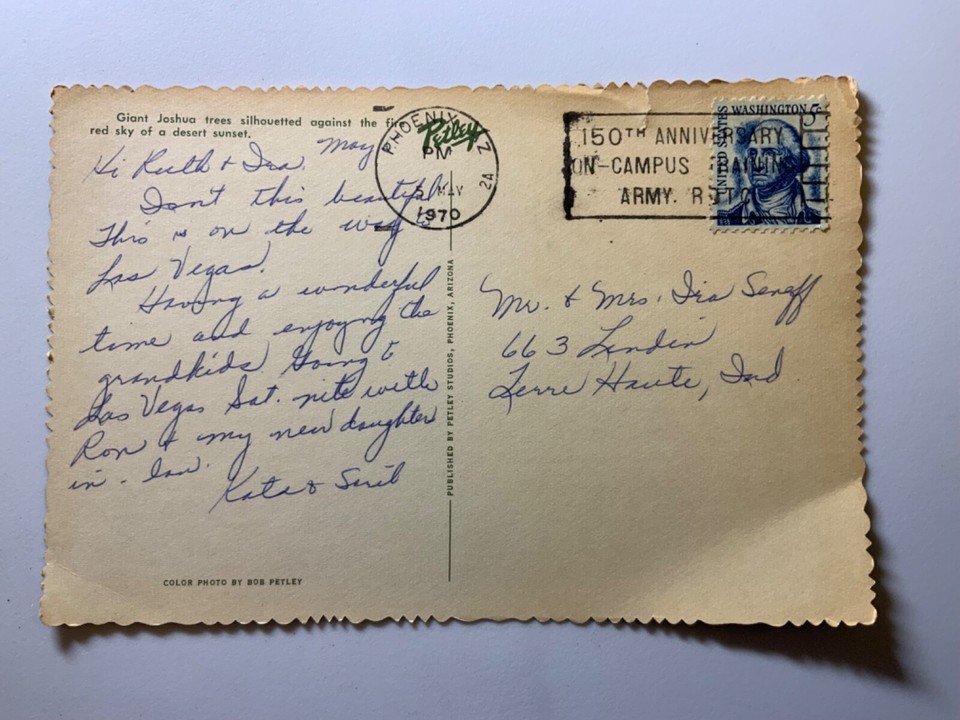 Giant Joshua trees silhouetted against the fi
red sky of a desert sunset.
Petley
PHOENIX, AZ
PM
5 MAY
1970
2A
150TH ANNIVERSARY
ON-CAMPUS TRAINING
ARMY. ROTC
UNITED STATES
WASHINGTON 5¢
Hi Ruth & Ira. May
Isn't this beautiful
This is on the way
Las Vegas.
Having a wonderful
time and enjoying the
grandkids Going to
Las Vegas Sat. nite with
Ron & my new daughter
in-law.
Kate &
PUBLISHED BY PETLEY STUDIOS, PHOENIX, ARIZONA
Mr. & Mrs. Ira Seneff
663 Linden
Terre Haute, Ind
COLOR PHOTO BY BOB PETLEY